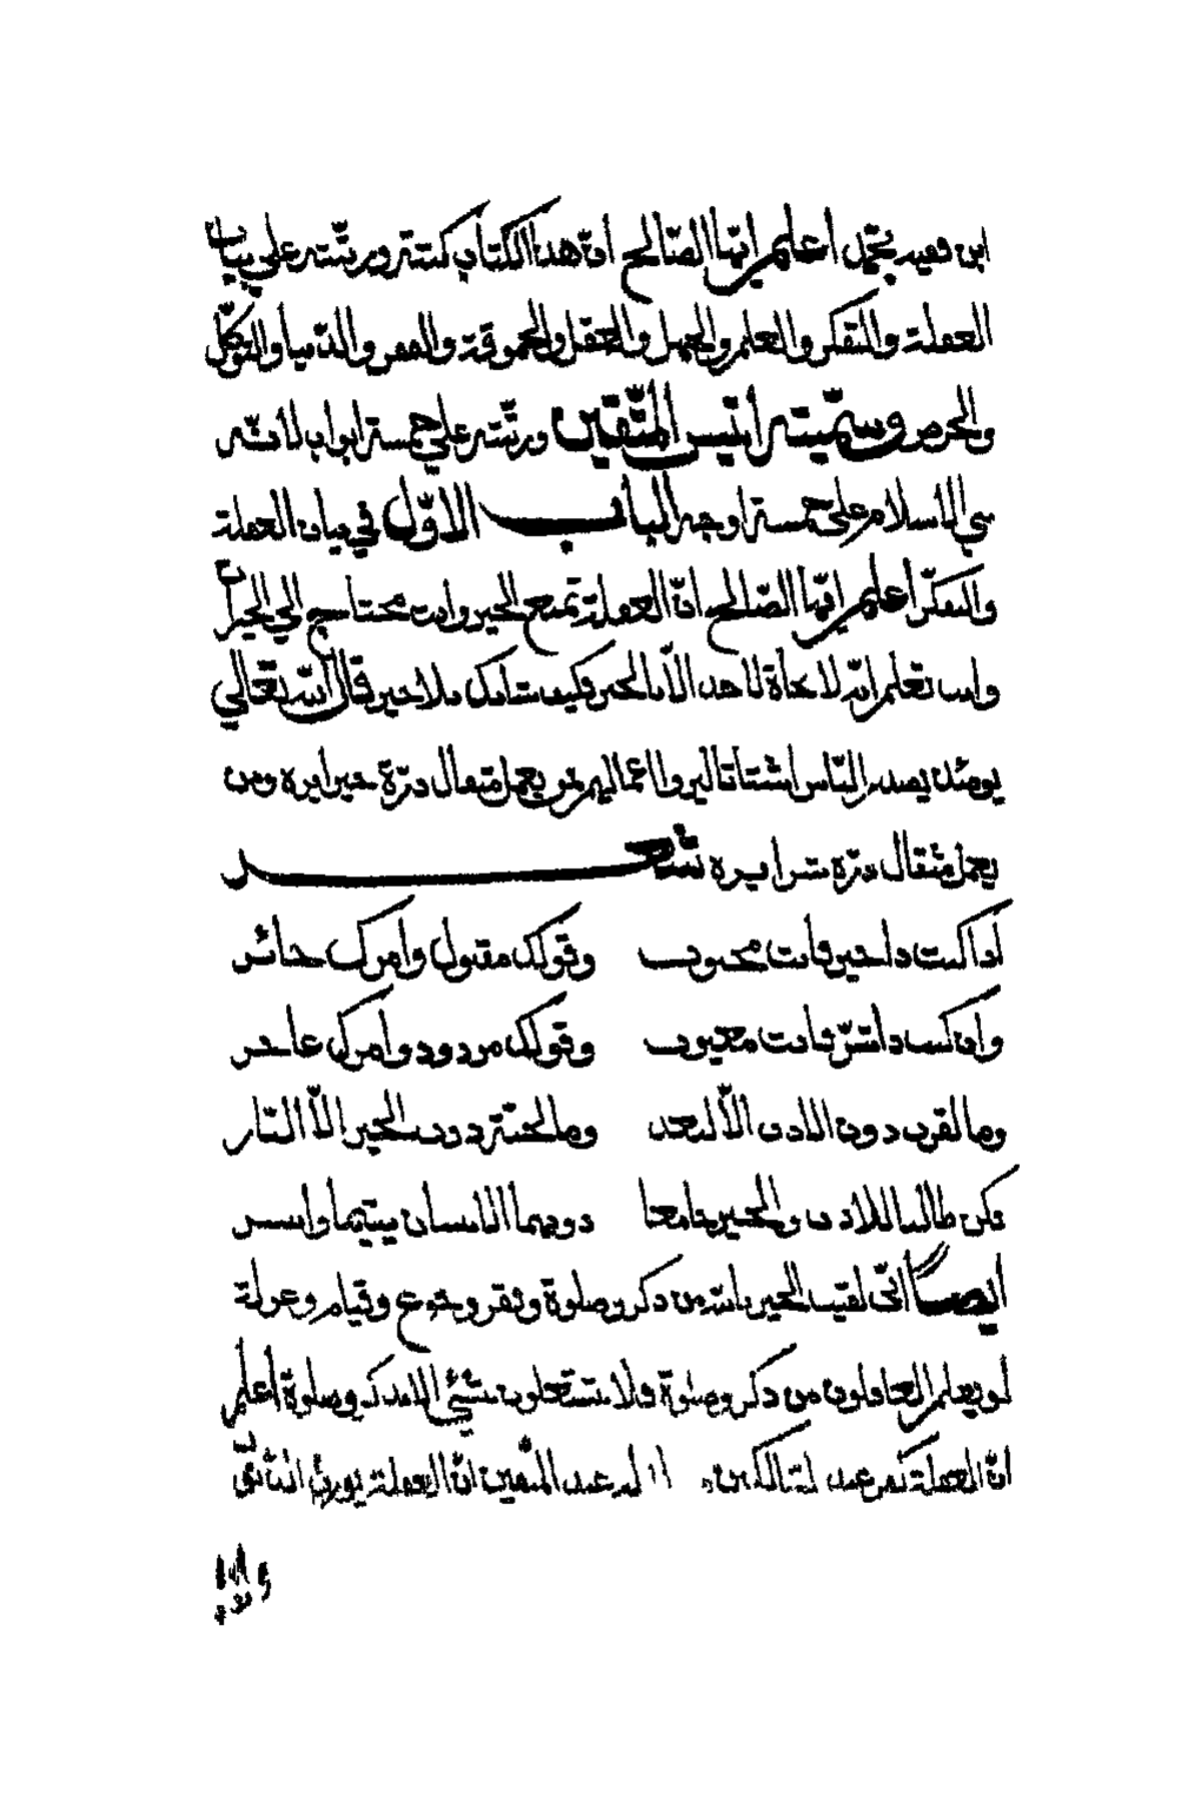 ابن فقيه محمد اعلم ايها الصالح ان هذا الكتاب كتبته ورتبته علي بيان
الغفلة والتفكر والعلم والجهل والعقل والحموقة والدنيا والتوكل
والحرص وسميته انيس المتقين ورتبته علي خمسة ابواب لانه
بني الاسلام علي خمسة اوجه الباب الاول في بيان الغفلة
والتفكر اعلم ايها الصالح ان الغفلة تمنع الخير وانت محتاج الي الخير
تعلم انه لا نجاة لاحد الا بالخير فكيف بلا خير قال الله تعالي
يومئذ يصدر الناس اشتاتا ليروا اعمالهم فمن يعمل مثقال ذرة خيرا يره ومن
يعمل مثقال ذرة شرا يره شعر
اذا كنت ذا خير فانت محبوب وقولك مقبول وامرك جائز
وان كنت ذا شر فانت معيوب وقولك مردود وامرك عاجز
وما القرب دون الادب الا البعد وما الجنة دون الخير الا النار
فكن طالبا للادب والخير جامعا دونهما الانسان
ايضا اني لقيت الخير بالله من ذكر وصلوة وفقر وجوع وقيام وعزلة
لو يعلم الغافلون من ذكر وصلوة فلا يشتغلون بشيء الا بذكر وصلوة اعلم
ان الغفلة عند عند المتقين ان الغفلة يورث